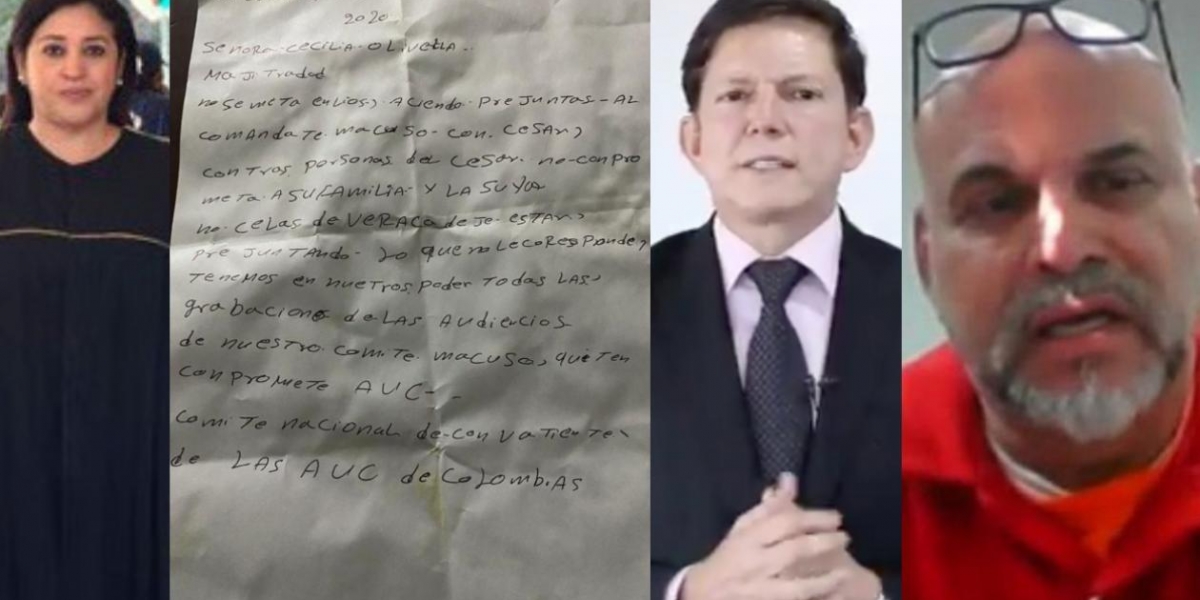 2020
SEÑORA. CECILIA. OLIVELLA..
MAJiTradad
no Se meta en Lios, ACiendo. PreJuntas - AL
COMANDATE. MACUSO - CON. CESAR,
CON TROS PORSONAS del CeSAr. no-conpro
meta. A SU FAMiLiA. Y LA SUYA
no. CELAS de VERACA deJe. ESTAR,
Pre JUNTANDO. Lo que no Le CoResponde,
TENEMOS en nueTros, PODER TODAS LAS,
grabaciones de LAS AUDieNCiOS
de nuestro. comiTe. MACUSO, que Ten
conpromeTe AUC - -
COMiTe nacional de-conVaTienTes
de LAS AUC de COLOMBiAS